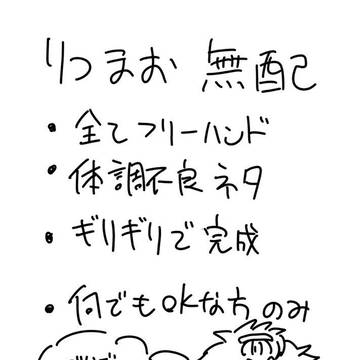 りつまお 無配
• 全てフリーハンド
• 体調不良ネタ
• ギリギリで完成
• 何でもokな方のみ